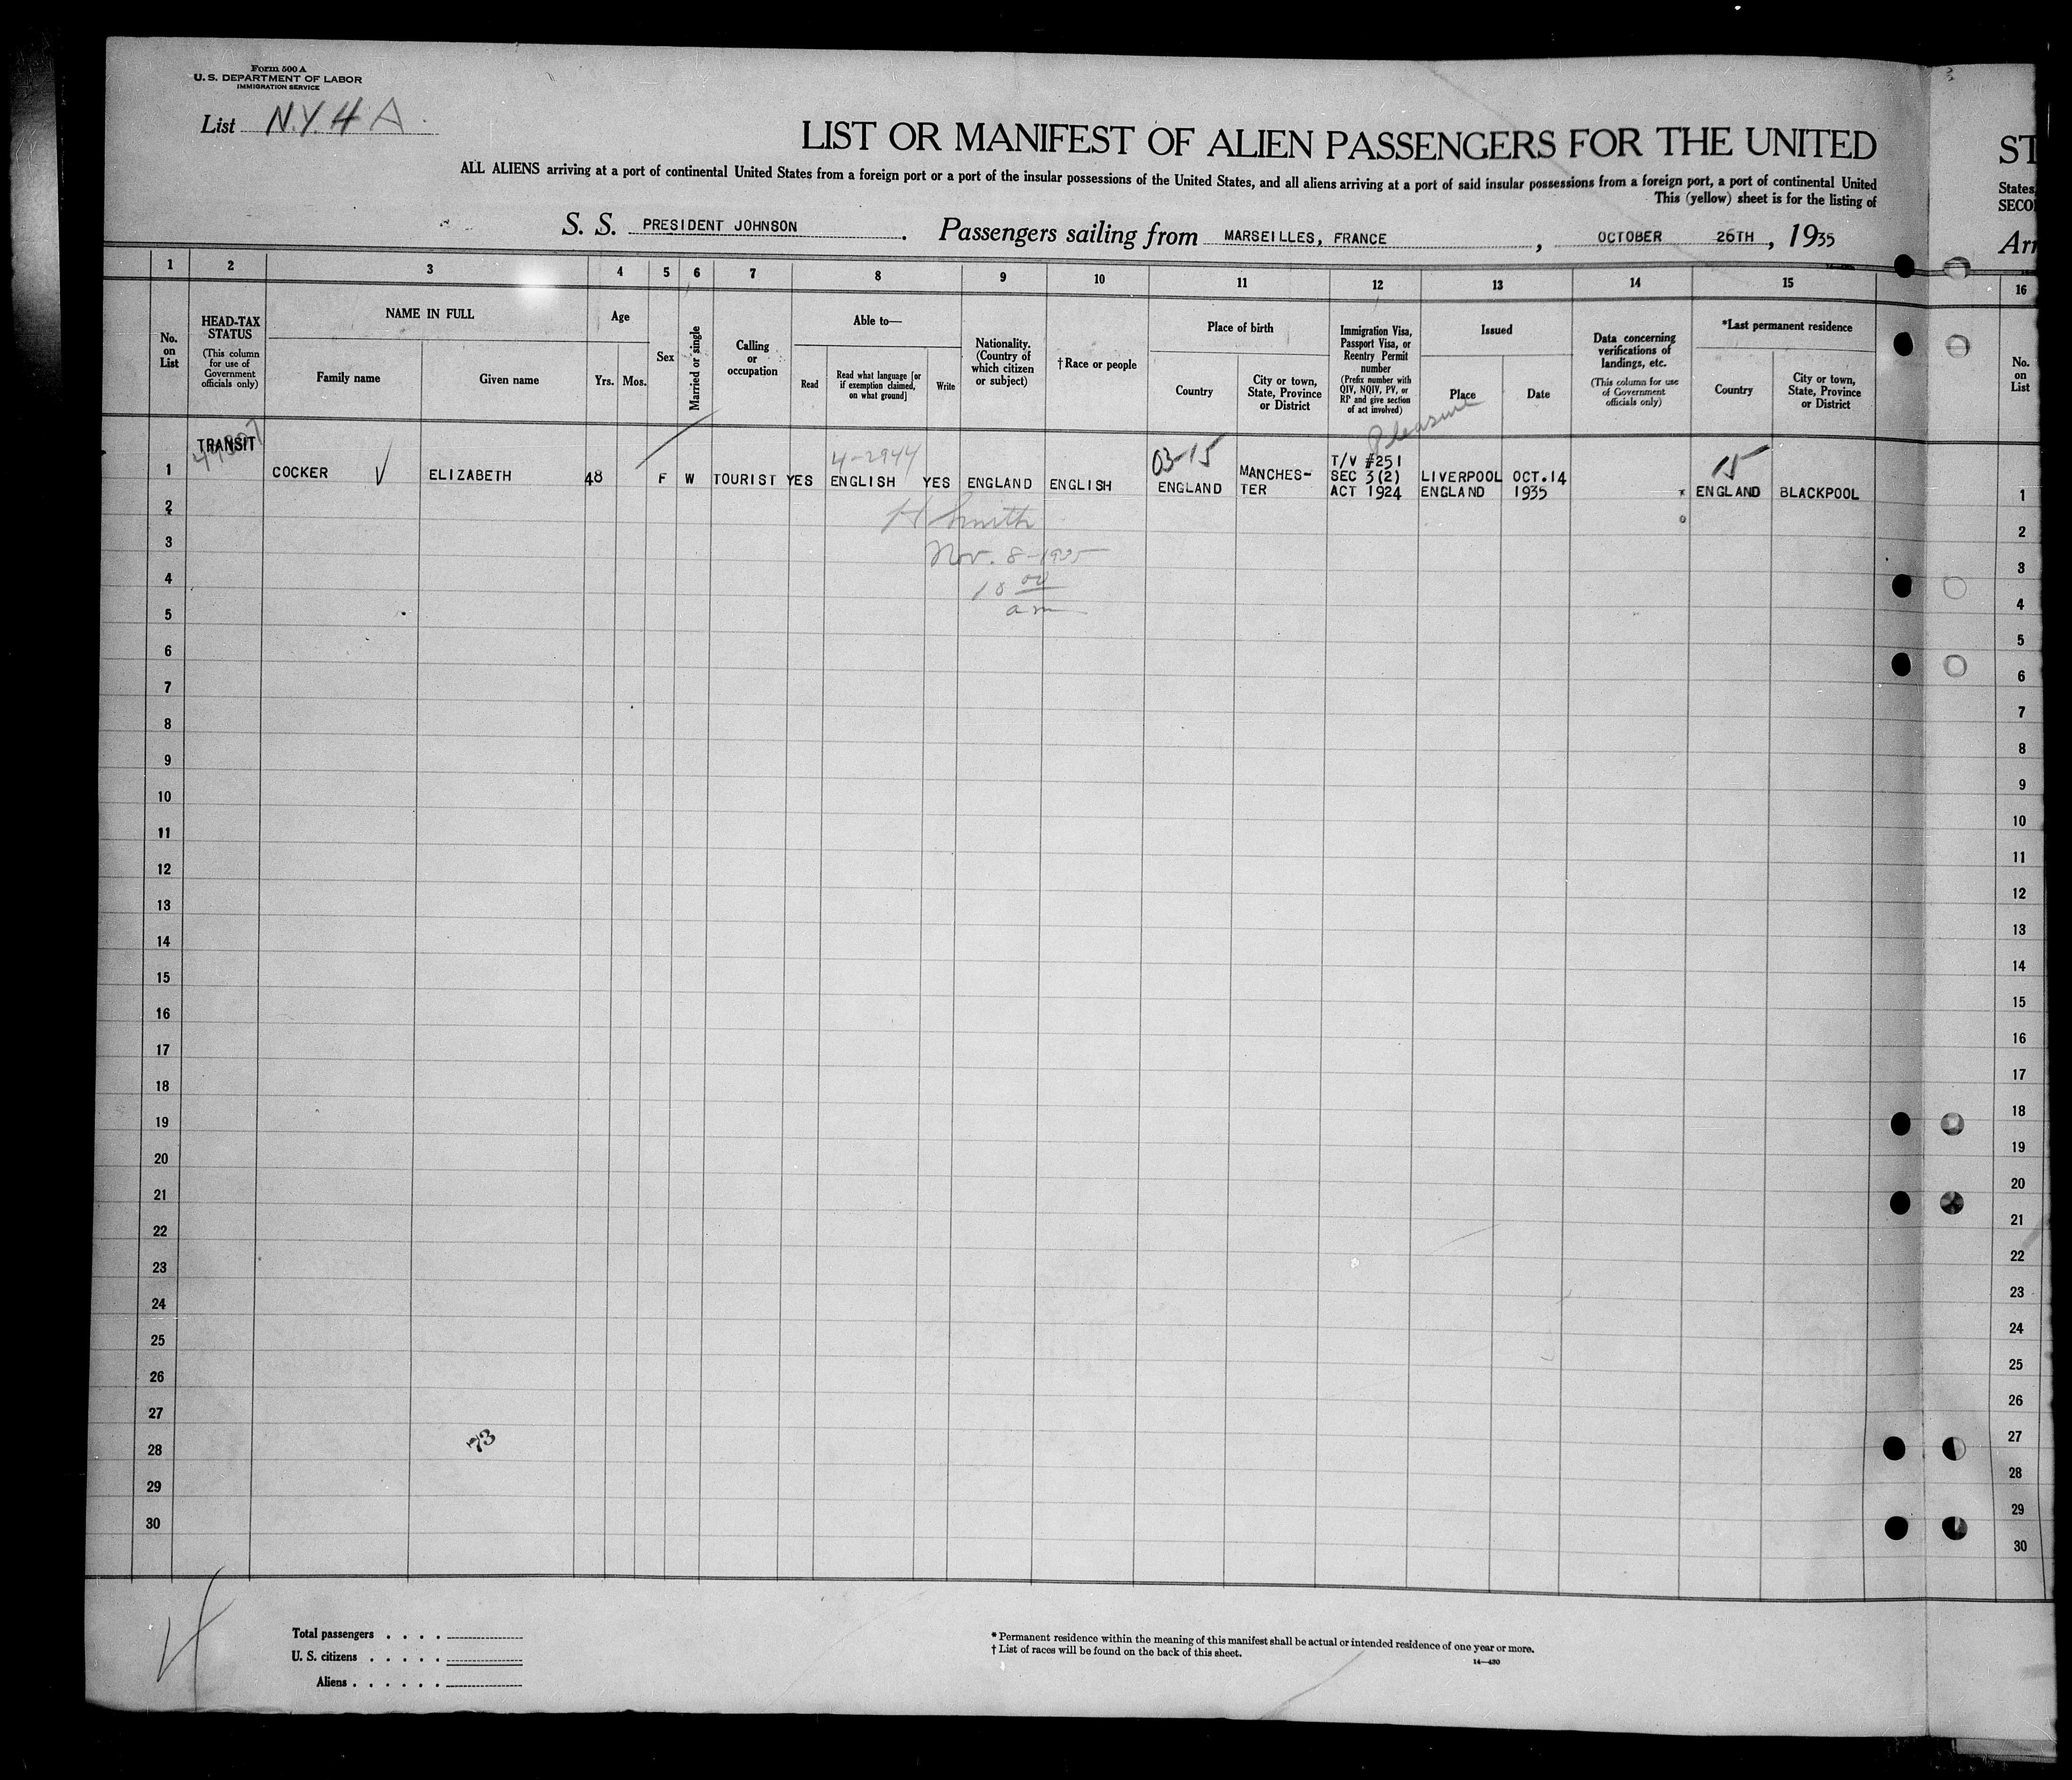 Form 500 A
U. S. DEPARTMENT OF LABOR
IMMIGRATION SERVICE
List N.Y. 4 A.
LIST OR MANIFEST OF ALIEN PASSENGERS FOR THE UNITED
ST
ALL ALIENS arriving at a port of continental United States from a foreign port or a port of the insular possessions of the United States, and all aliens arriving at a port of said insular possessions from a foreign port, a port of continental United
States
This (yellow) sheet is for the listing of
SECO
S. S. PRESIDENT JOHNSON. Passengers sailing from MARSEILLES, FRANCE, OCTOBER 26TH, 1935
Arr
1 2 3 4 5 6 7 8 9 10 11 12 13 14 15
16
No. on List
HEAD-TAX STATUS
(This column for use of Government officials only)
NAME IN FULL
Family name
Given name
Age
Yrs. Mos.
Sex
Married or single
Calling or occupation
Able to—
Read
Read what language [or if exemption claimed, on what ground]
Write
Nationality. (Country of which citizen or subject)
† Race or people
Place of birth
Country
City or town, State, Province or District
Immigration Visa, Passport Visa, or Reentry Permit number
(Prefix number with QIV, NQIV, PV, or RP and give section of act involved)
Issued
Place
Date
Data concerning verifications of landings, etc.
(This column for use of Government officials only)
*Last permanent residence
Country
City or town, State, Province or District
No. on List
Pleasure
TRANSIT
4-2944
03-15
15
1 COCKER ELIZABETH 48 F W TOURIST YES ENGLISH YES ENGLAND ENGLISH ENGLAND MANCHES-TER T/V #251 SEC 3(2) ACT 1924 LIVERPOOL ENGLAND OCT.14 1935 ENGLAND BLACKPOOL
1
H Smith
Nov. 8-1935
10 00
am
2
3
4
5
6
7
8
9
10
11
12
13
14
15
16
17
18
19
20
21
22
23
24
25
26
27
28
29
30
2
3
4
5
6
7
8
9
10
11
12
13
14
15
16
17
18
19
20
21
22
23
24
25
26
27
28
29
30
73
4
Total passengers . . . .
U. S. citizens . . . . .
Aliens . . . . . .
* Permanent residence within the meaning of this manifest shall be actual or intended residence of one year or more.
† List of races will be found on the back of this sheet.
14—430